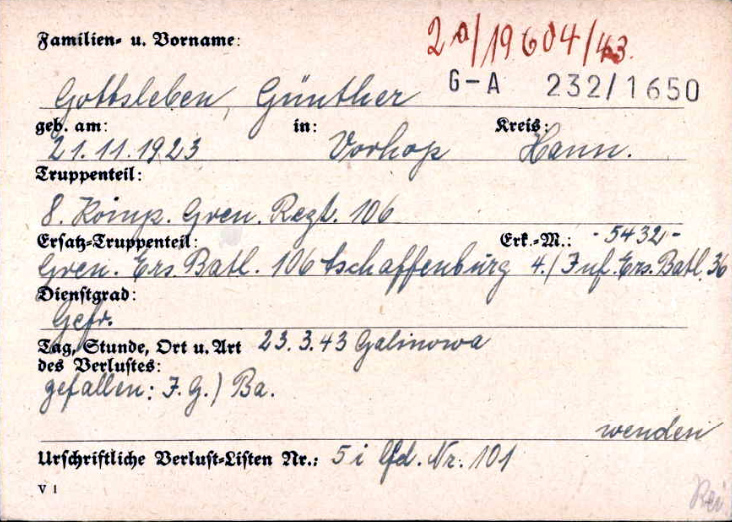 Familien- u. Vorname:
2a/19604/43.
G-A 232/1650
Gottsleben, Günther
geb. am: in: Kreis:
21.11.1923 Vorhop Hann.
Truppenteil:
8. Komp. Gren. Regt. 106
Ersatz-Truppenteil: Erk.-M.: -5432-
Gren. Ers. Batl. 106 Aschaffenburg 4./Inf. Ers. Batl. 36
Dienstgrad:
Gefr.
Tag, Stunde, Ort u. Art 23.3.43 Galinowa
des Verlustes:
gefallen: J. G.) Ba.
wenden
Urschriftliche Verlust-Listen Nr.: 5 i lfd. Nr. 101
V 1
Rei